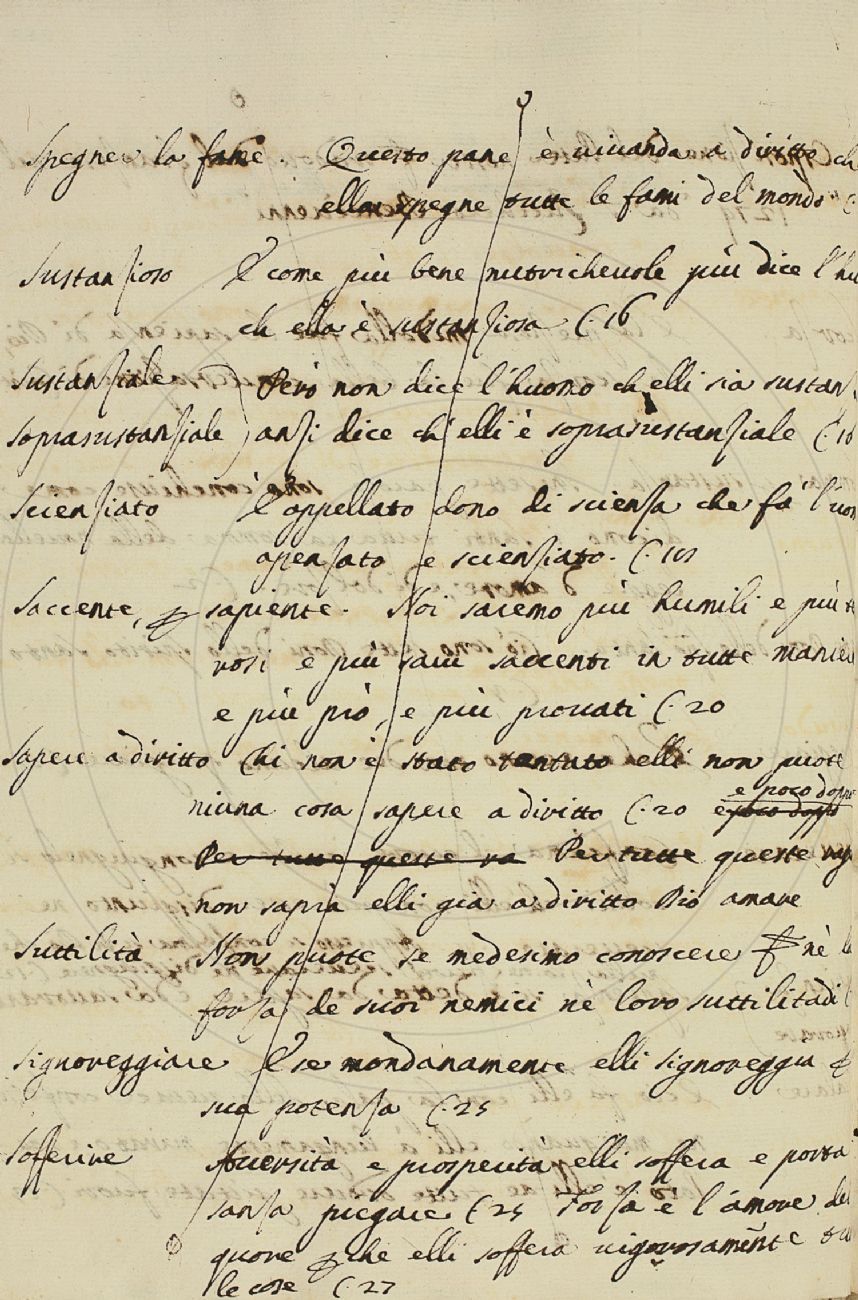 Spegner la fame. Questo pane è vivanda a diritto ch
ella spegne tutte le fami del mondo
Sustanzioso E come più bene nutrichevole più dice l'hu
ch ella è sustanziosa C. 16
Sustanziale Però non dice l'huomo ch elli sia sustanz
soprasustanziale anzi dice ch' elli è soprasustanziale C. 16
Scienziato E' appellato dono di scienza che fá l'uom
apensato e scienziato. C.
Saccente, ꝑ sapiente. Noi saremo più humili e più
rosi e più savi saccenti in tutte manier
e più prò, e più provati C. 20
Sapere a diritto Chi non è stato tentato elli non puote
niuna cosa sapere a diritto C. 20 e poco doppo e poco doppo
Per tutte queste ra Per tutte queste rag
non saprà elli già a diritto Dio amare
Suttilità Non puote se medesimo conoscere nè l
forza de suoi nemici nè loro suttilitadi
Signoreggiare E se mondanamente elli signoreggia ꝑ
sua potenza C. 25
Sofferire Aversità e prosperità elli soffera e porta
sanza piegare C. 25 Forza è l'amore del
quore ꝑ che elli soffera vigorosamente tu
le cose C. 27